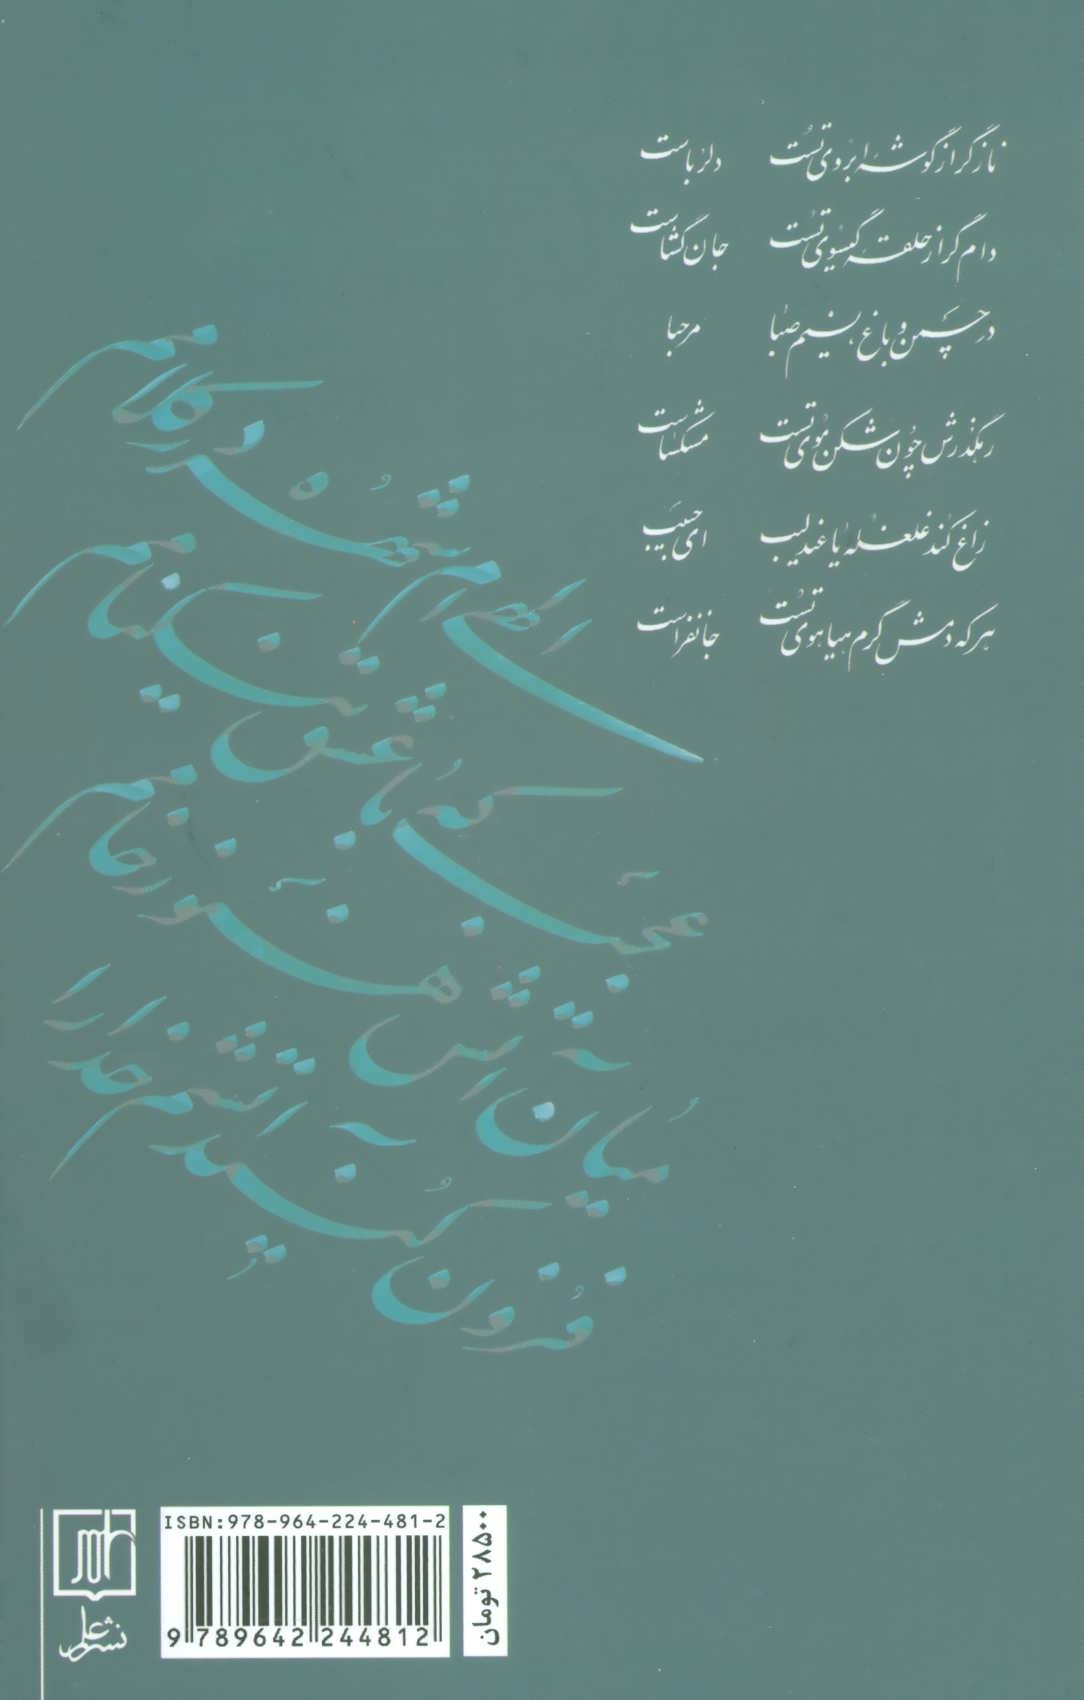 ناز گر از گوشه ابروی تُست دلرباست
دام گر از حلقه گیسوی تُست جان گشاست
در چمن و باغ، نسیم صبا مرحبا
رهگذرش چون شکن موی تست مشکساست
زاغ کند غلغله یا عندلیب ای حبیب
هر که دمش گرم هیاهوی تُست جانفزاست
شراره
در کلامم
عجب که با عشق
میان آتش هنوز خامم
فزون کنید آتشم خدا را
ISBN:978-964-224-481-2
9 789642 244812
۲۸۵۰۰ تومان
نشر علم